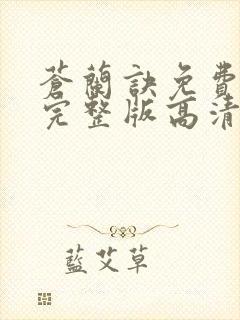 蒼蘭訣免費
完整版高清
藍艾草